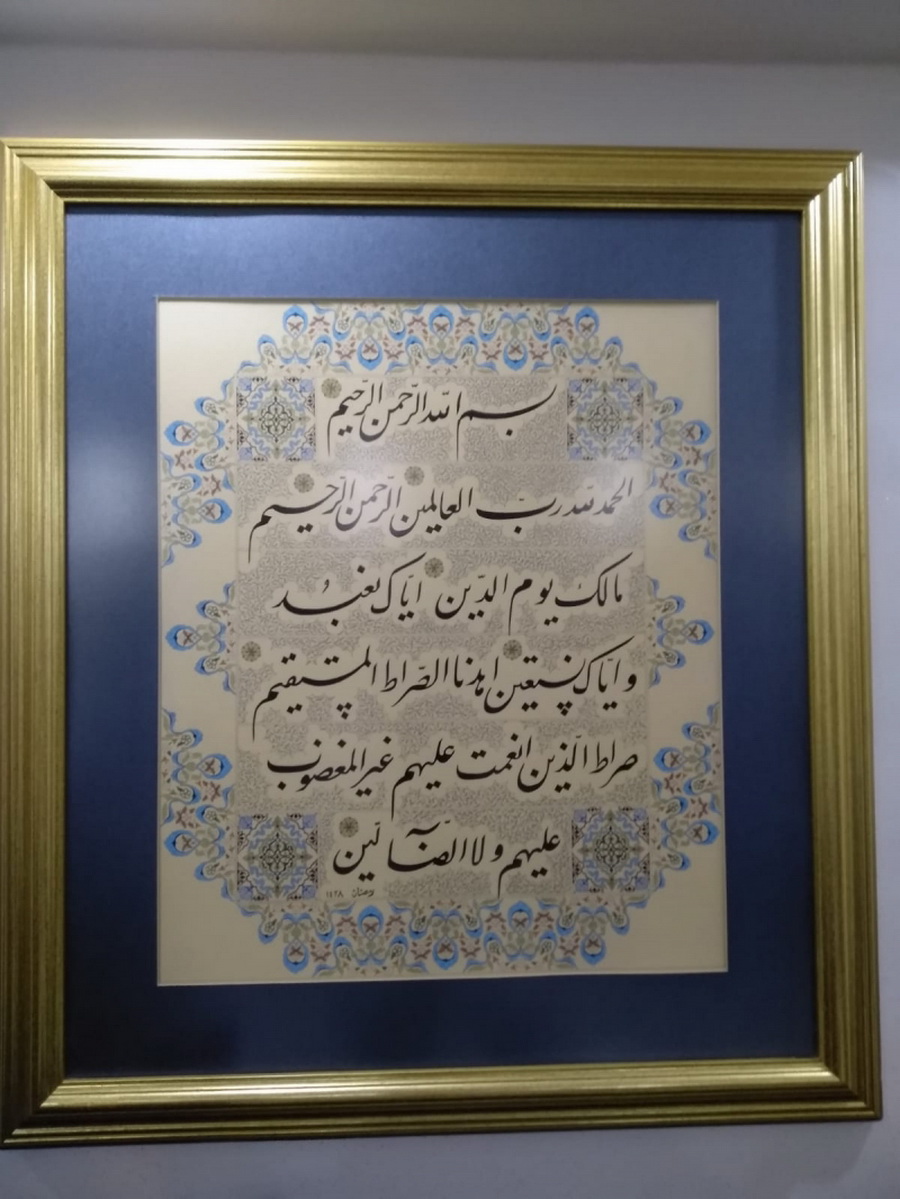 بسم الله الرّحمن الرّحیم
الحمد لله ربّ العالمین الرّحمن الرّحیم
مالک یوم الدّین ایّاک نعبُد
و ایّاک نستعین اهدنا الصّراط المستقیم
صراط الّذین انعمت علیهم غیر المغضوب
علیهم و لا الضّآلّین
۱۴۲۸